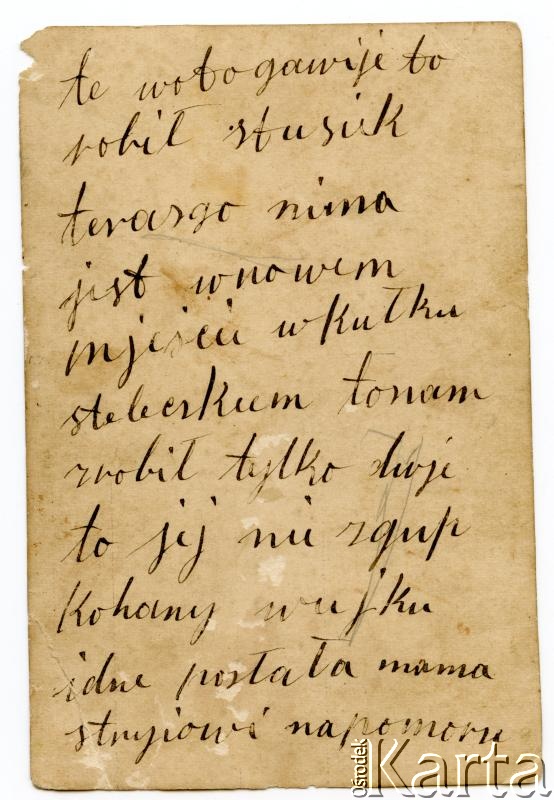 te wotogawije to
robił stusiek
terazgo nima
jest wnowem
mjeście wkułku
stelecskiem tonam
zrobił tylko dwje
to jej nie zgup
Kohany wujku
idne posłała mama
stryiowi napomoru
ośrodek Karta